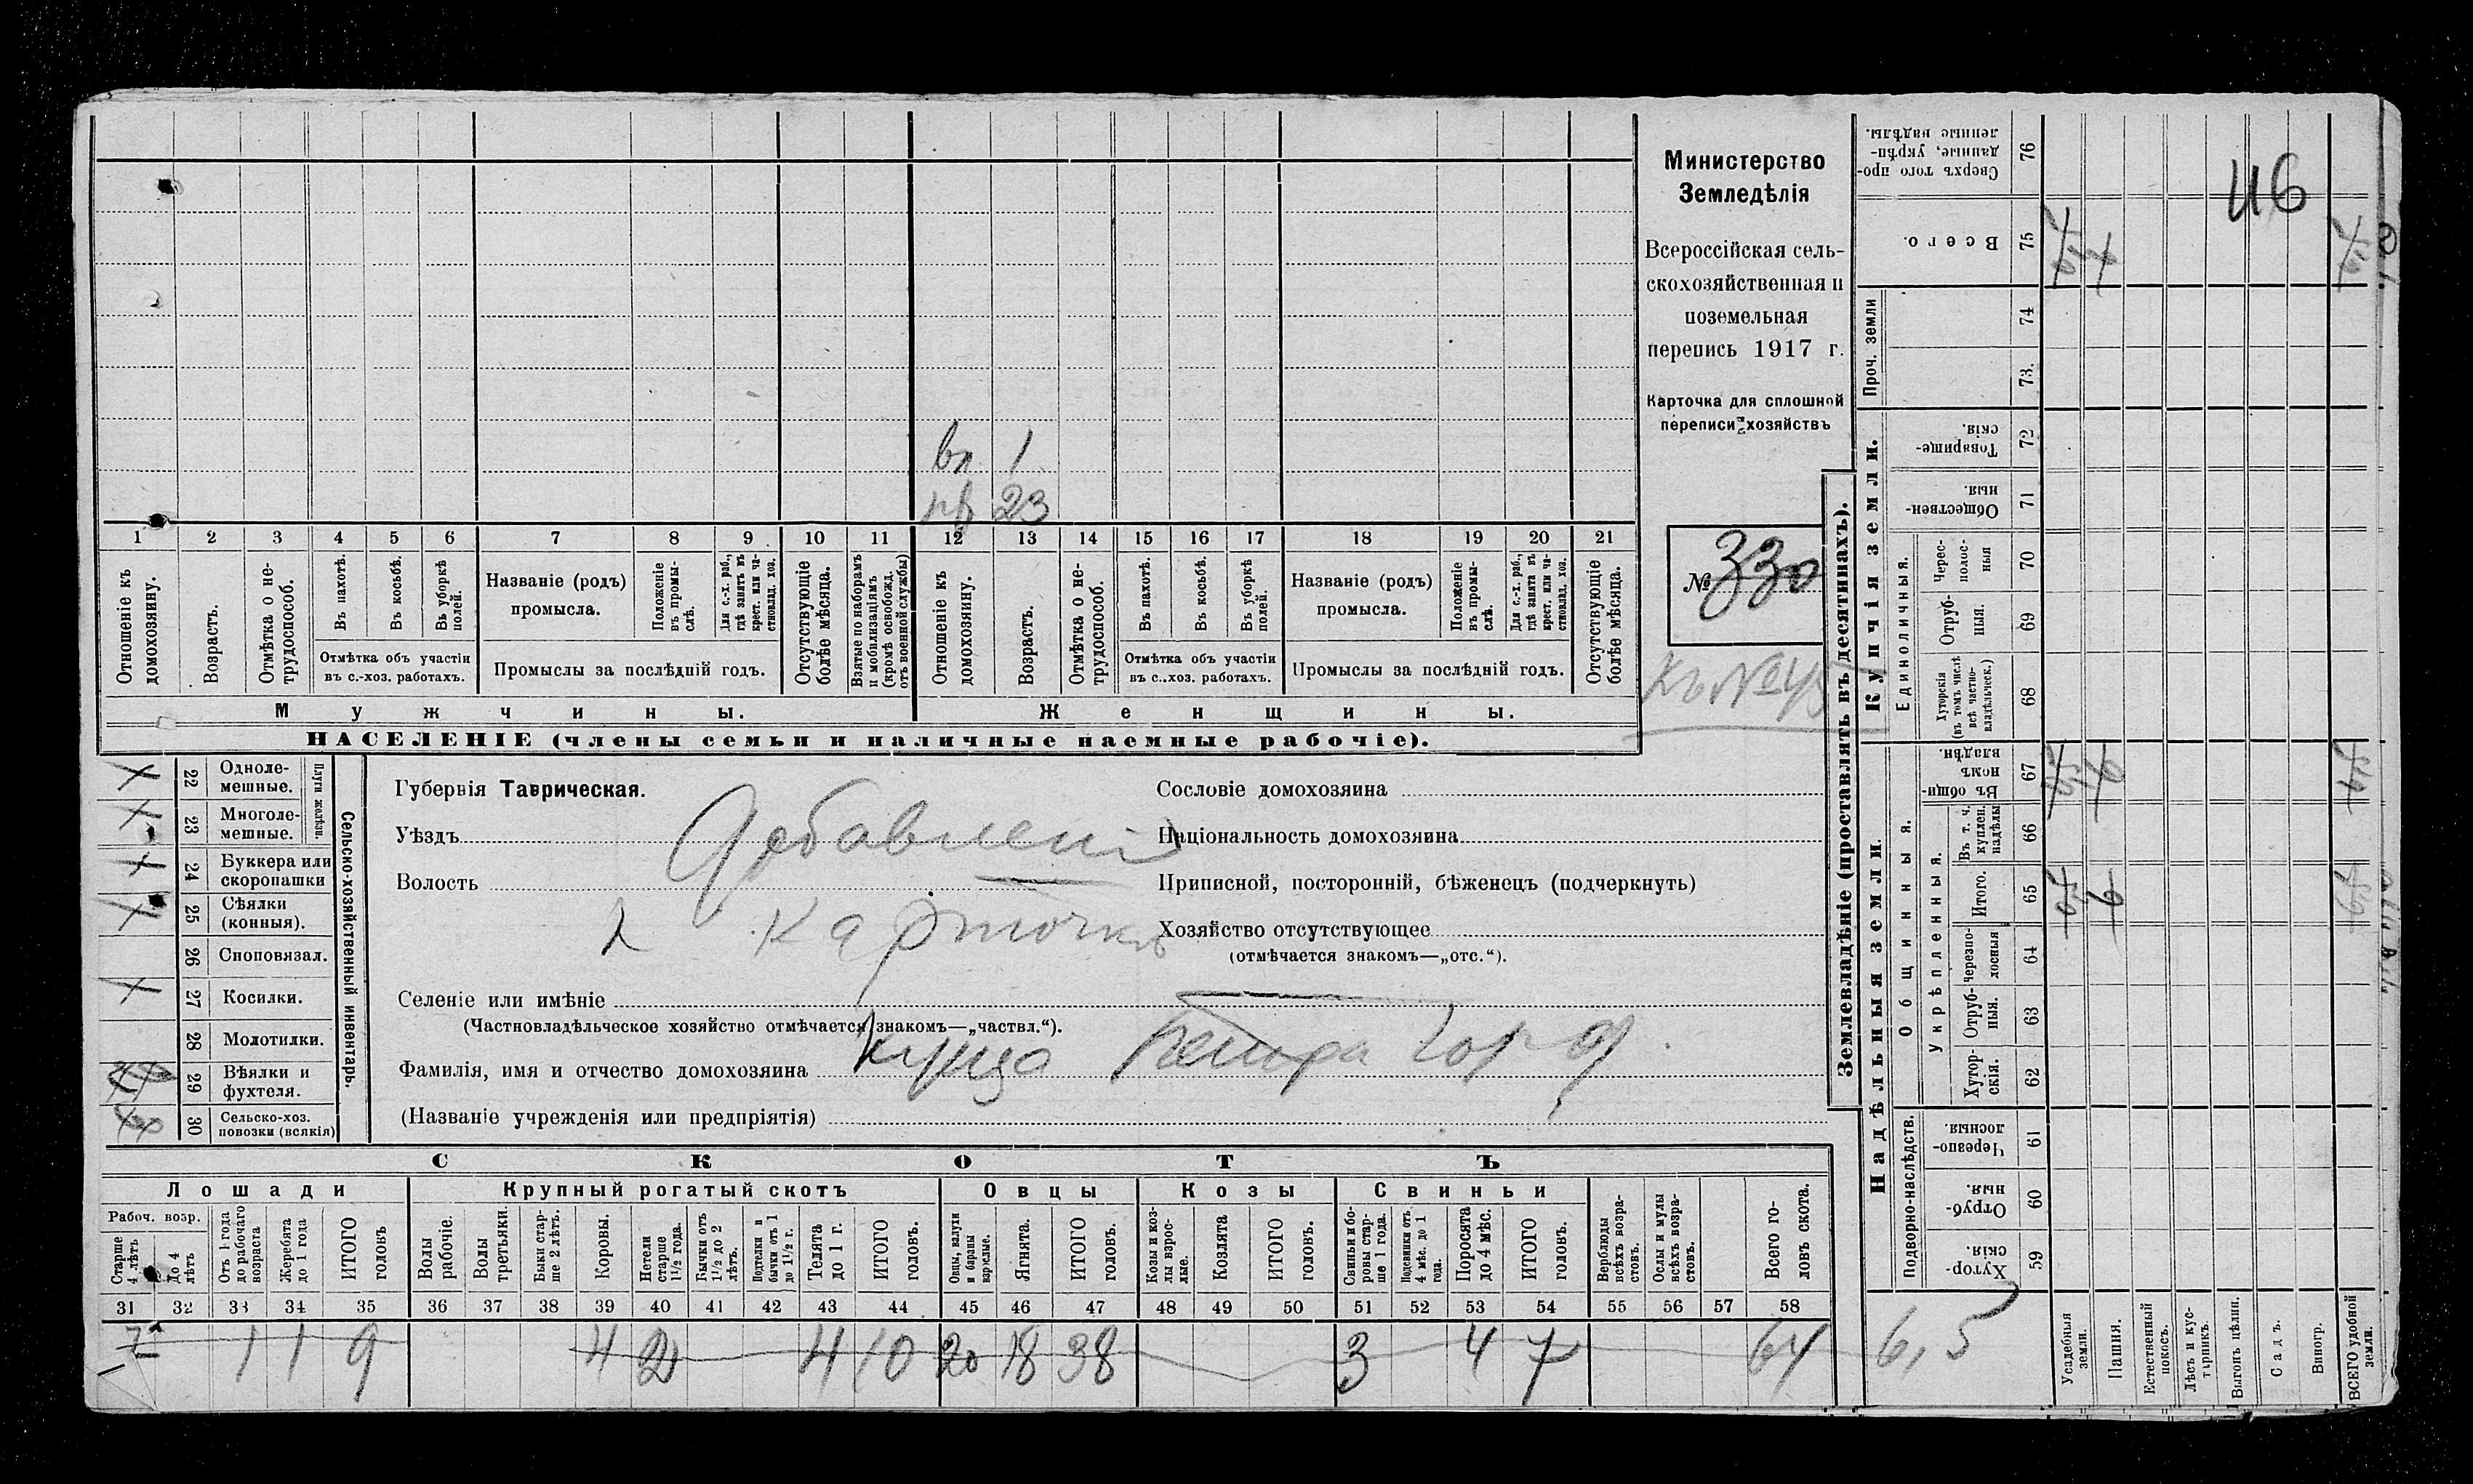 Министерство
Земледѣлія
Всероссійская сель-
скохозяйственная и
поземельная
перепись 1917 г.
Карточка для сплошной
переписи хозяйствъ
№ 330
Къ № 45
46
вл 1
23
1 2 3 4 5 6 7 8 9 10 11 12 13 14 15 16 17 18 19 20 21
Отношеніе къ домохозяину.
Возрастъ.
Отмѣтка о не-трудоспособ.
Въ пахотѣ.
Въ косьбѣ.
Въ уборкѣ полей.
Отмѣтка объ участіи
въ с.-хоз. работахъ.
Названіе (родъ)
промысла.
Положеніе въ промы-слѣ.
Для с.-х. раб., гдѣ занятъ въ крест. или ча-стновлад. хоз.
Промыслы за послѣдній годъ.
Отсутствующіе болѣе мѣсяца.
Взятые по наборамъ и мобилизаціямъ (кромѣ освобожд. отъ военной службы)
Отношеніе къ домохозяину.
Возрастъ.
Отмѣтка о не-трудоспособ.
Въ пахотѣ.
Въ косьбѣ.
Въ уборкѣ полей.
Отмѣтка объ участіи
въ с.-хоз. работахъ.
Названіе (родъ)
промысла.
Положеніе въ промы-слѣ.
Для с.-х. раб., гдѣ занятъ въ крест. или ча-стновлад. хоз.
Промыслы за послѣдній годъ.
Отсутствующіе болѣе мѣсяца.
Мужчины.
Женщины.
НАСЕЛЕНІЕ (члены семьи и наличные наемные рабочіе).
22 Одноле-мешные.
23 Многоле-мешные.
Плуги желѣзн.
24 Буккера или скоропашки
25 Сѣялки (конныя).
26 Сноповязал.
27 Косилки.
28 Молотилки.
29 Вѣялки и фухтеля.
30 Сельско-хоз. повозки (всякія)
Сельско-хозяйственный инвентарь.
Губернія Таврическая.
Уѣздъ
Волость
Добавленіе
к карточкѣ
Селеніе или имѣніе
(Частновладѣльческое хозяйство отмѣчается знакомъ—„частвл.“).
Фамилія, имя и отчество домохозяина
(Названіе учрежденія или предпріятія)
Сословіе домохозяина
Національность домохозяина
Приписной, посторонній, бѣженецъ (подчеркнуть)
Хозяйство отсутствующее
(отмѣчается знакомъ—„отс.“).
СКОТЪ
Лошади
Крупный рогатый скотъ
Овцы
Козы
Свиньи
Рабоч. возр.
Старше 4 лѣтъ
До 4 лѣтъ
Отъ 1 года до рабочаго возраста
Жеребята до 1 года
ИТОГО головъ
Волы рабочіе.
Волы третьяки.
Быки стар-ше 2 лѣтъ.
Коровы.
Нетели старше 1½ года.
Бычки отъ 1½ до 2 лѣтъ.
Подтелки и бычки отъ 1 до 1½ г.
Телята до 1 г.
ИТОГО головъ.
Овцы, валухи и бараны взрослые.
Ягнята.
ИТОГО головъ.
Козы и коз-лы взрос-лые.
Козлята
ИТОГО головъ.
Свиньи и бо-ровы стар-ше 1 года.
Подсвинки отъ 4 мѣс. до 1 года.
Поросята до 4 мѣс.
ИТОГО головъ.
Верблюды всѣхъ возра-стовъ.
Ослы и мулы всѣхъ возра-стовъ.
Всего го-ловъ скота.
31 32 33 34 35 36 37 38 39 40 41 42 43 44 45 46 47 48 49 50 51 52 53 54 55 56 57 58
7 1 1 9 4 2 4 10 20 18 38 3 4 7 64
6,5
Землевладѣніе (проставлять въ десятинахъ).
Купчія земли.
Надѣльныя земли.
Сверхъ того про-данные, укрѣп-ленные надѣлы. 76
Всего. 75
Проч. земли
74
73.
Товарище-скія. 72
Обществен-ныя. 71
Единоличныя.
Черес-полос-ныя 70
Отруб-ныя. 69
Хуторскія (въ томъ числѣ всѣ частно-владѣльческ.) 68
Общинныя.
Въ общин-номъ владѣн. 67
Укрѣпленныя.
Въ т. ч. куплен. надѣлы 66
Итого. 65
Черезпо-лосныя 64
Отруб-ныя. 63
Хутор-скія. 62
Подворно-наслѣдств.
Черезпо-лосныя. 61
Отруб-ныя. 60
Хутор-скія. 59
Усадебныя земли.
Пашня.
Естественный покосъ.
Лѣсъ и кус-тарникъ.
Выгонъ цѣлин.
Садъ.
Виногр.
ВСЕГО удобной земли.